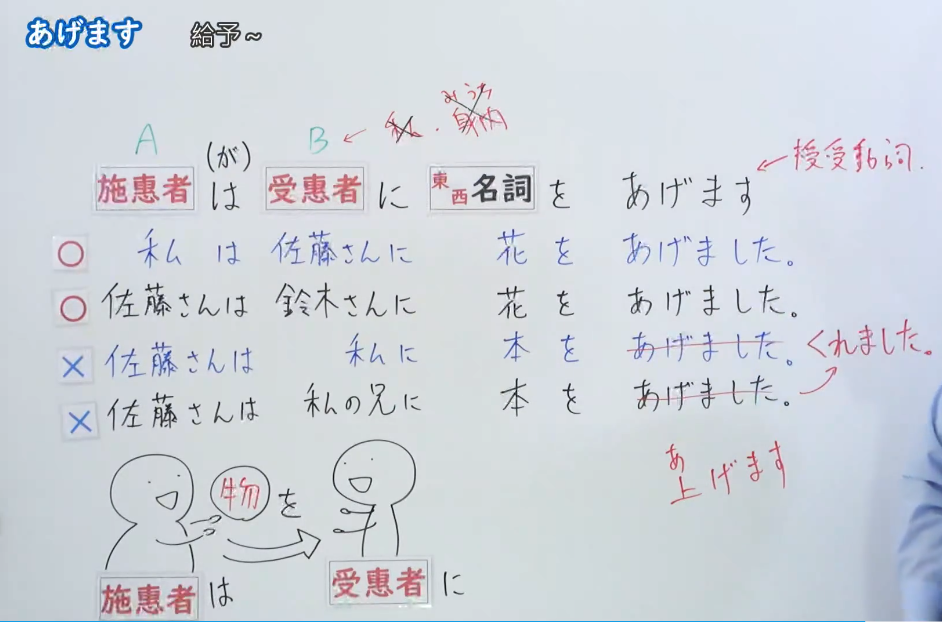 あげます 給予～
みうち
A B ← 私・身内
施惠者は(が) 受惠者に 東西名詞を あげます ← 授受動詞.
○ 私は 佐藤さんに 花を あげました。
○ 佐藤さんは 鈴木さんに 花を あげました。
× 佐藤さんは 私に 本を あげました。 くれました。
× 佐藤さんは 私の兄に 本を あげました。
あ
上げます
物を
施惠者は 受惠者に